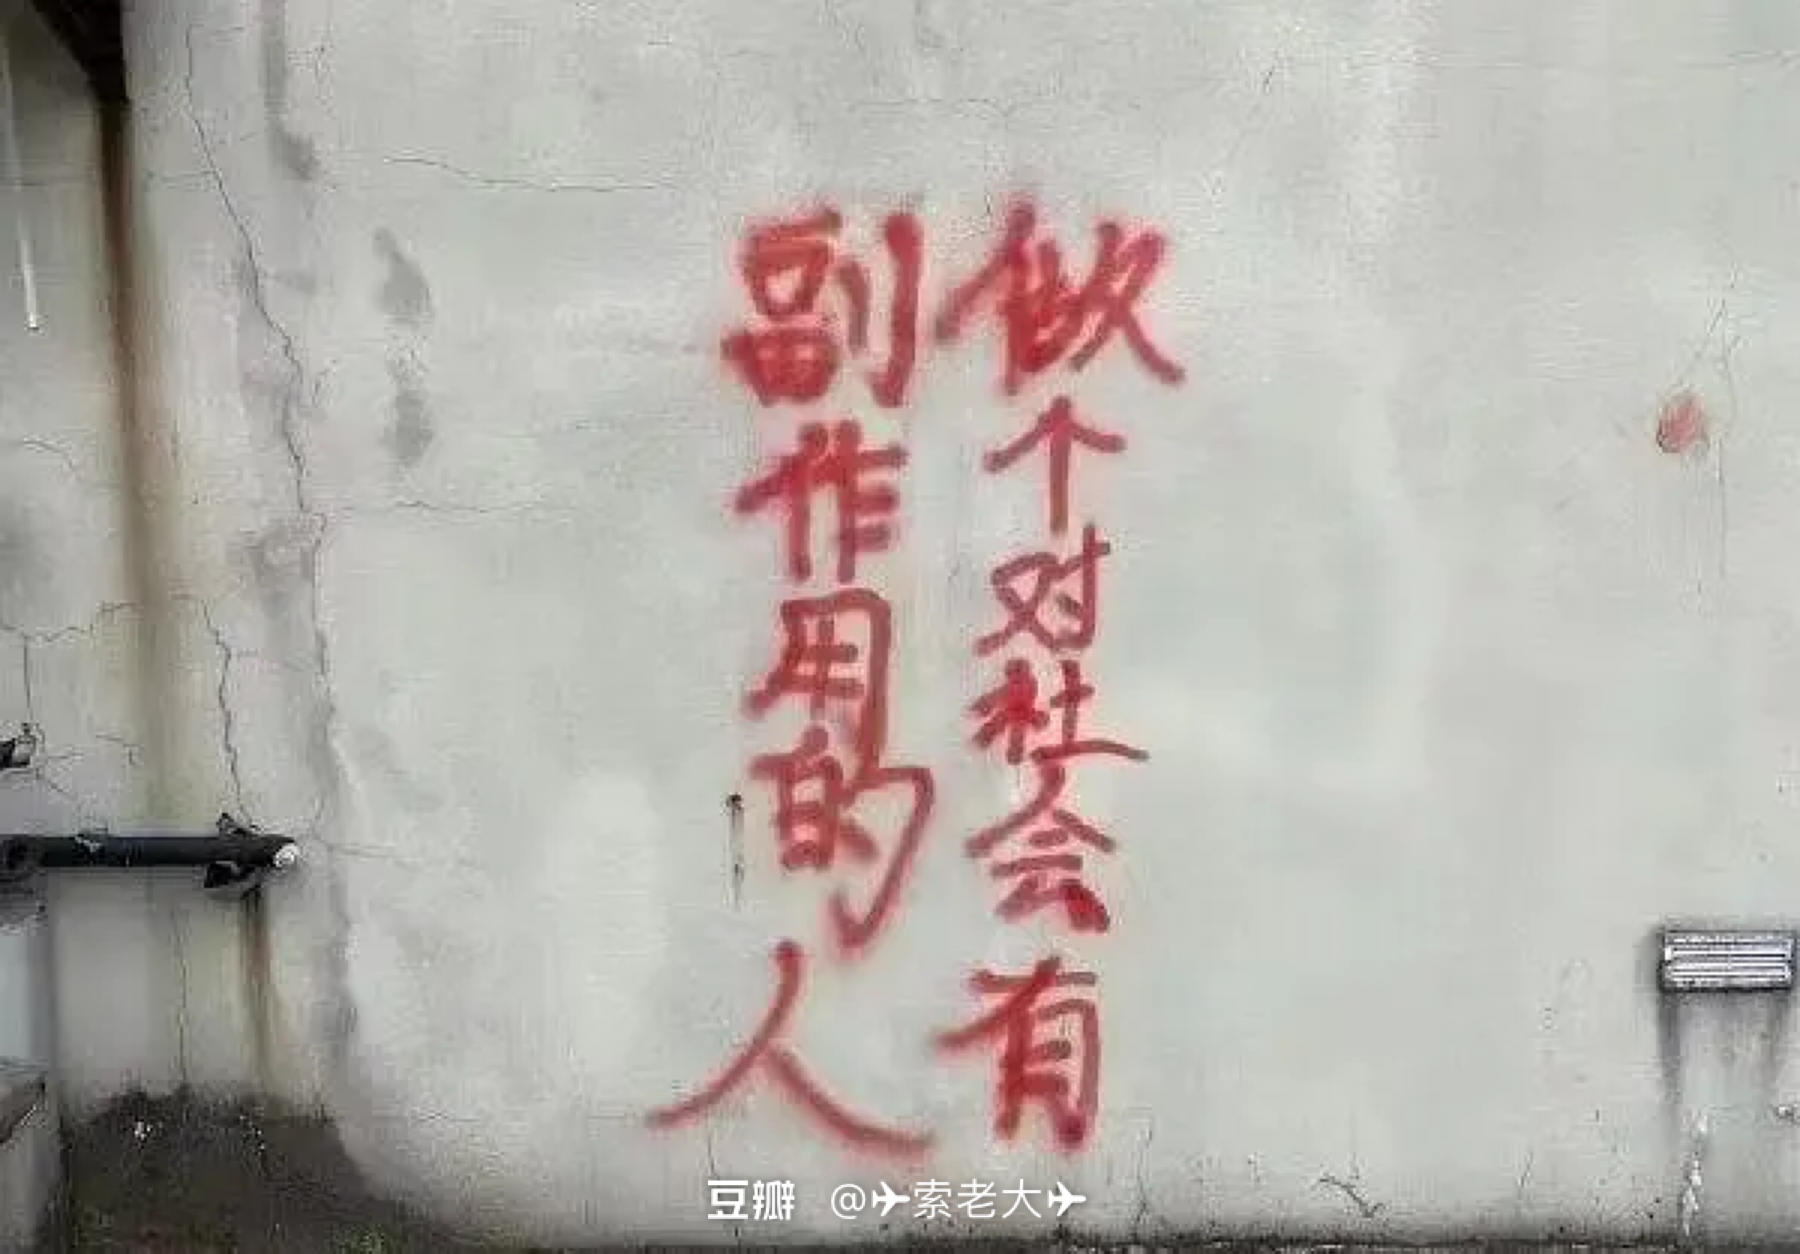 做个对社会有
副作用的人
豆瓣 @✈索老大✈